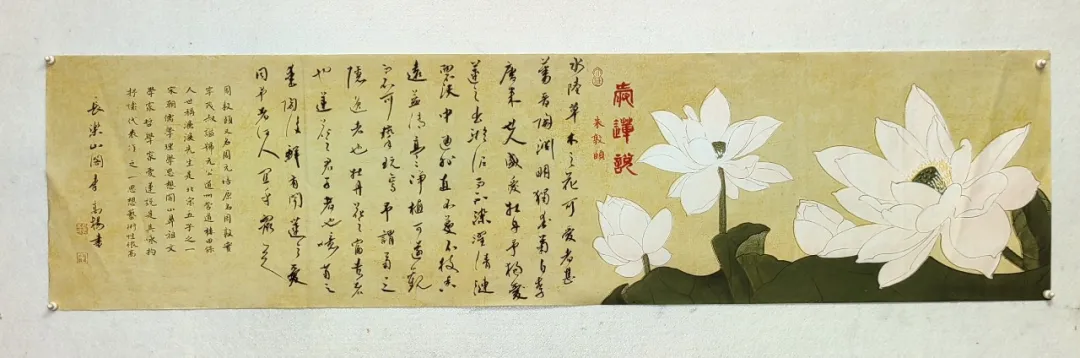 愛蓮說
敦頤
水陸草木之花可愛者甚
蕃晉陶淵明獨愛菊自李
唐来世人盛愛牡丹予独愛
蓮之出淤泥而不染濯清漣
中通外直不蔓不枝香
遠益清亭亭淨植可遠觀
而不可褻玩焉予謂菊之
隱逸者也牡丹花之富貴者
也蓮花之君子者也噫菊之
愛陶後鮮有聞蓮之愛
同予者何人宜乎衆人
周敦頤又名周元皓原名周敦實
字茂叔謚號元公道州營道樓田保
人世稱濂溪先生是北宋五子之一
宋朝儒學理學思想開山鼻祖文
學家哲學家愛蓮說是其
抒情代表作之一思想藝術性很高
長樂山閣